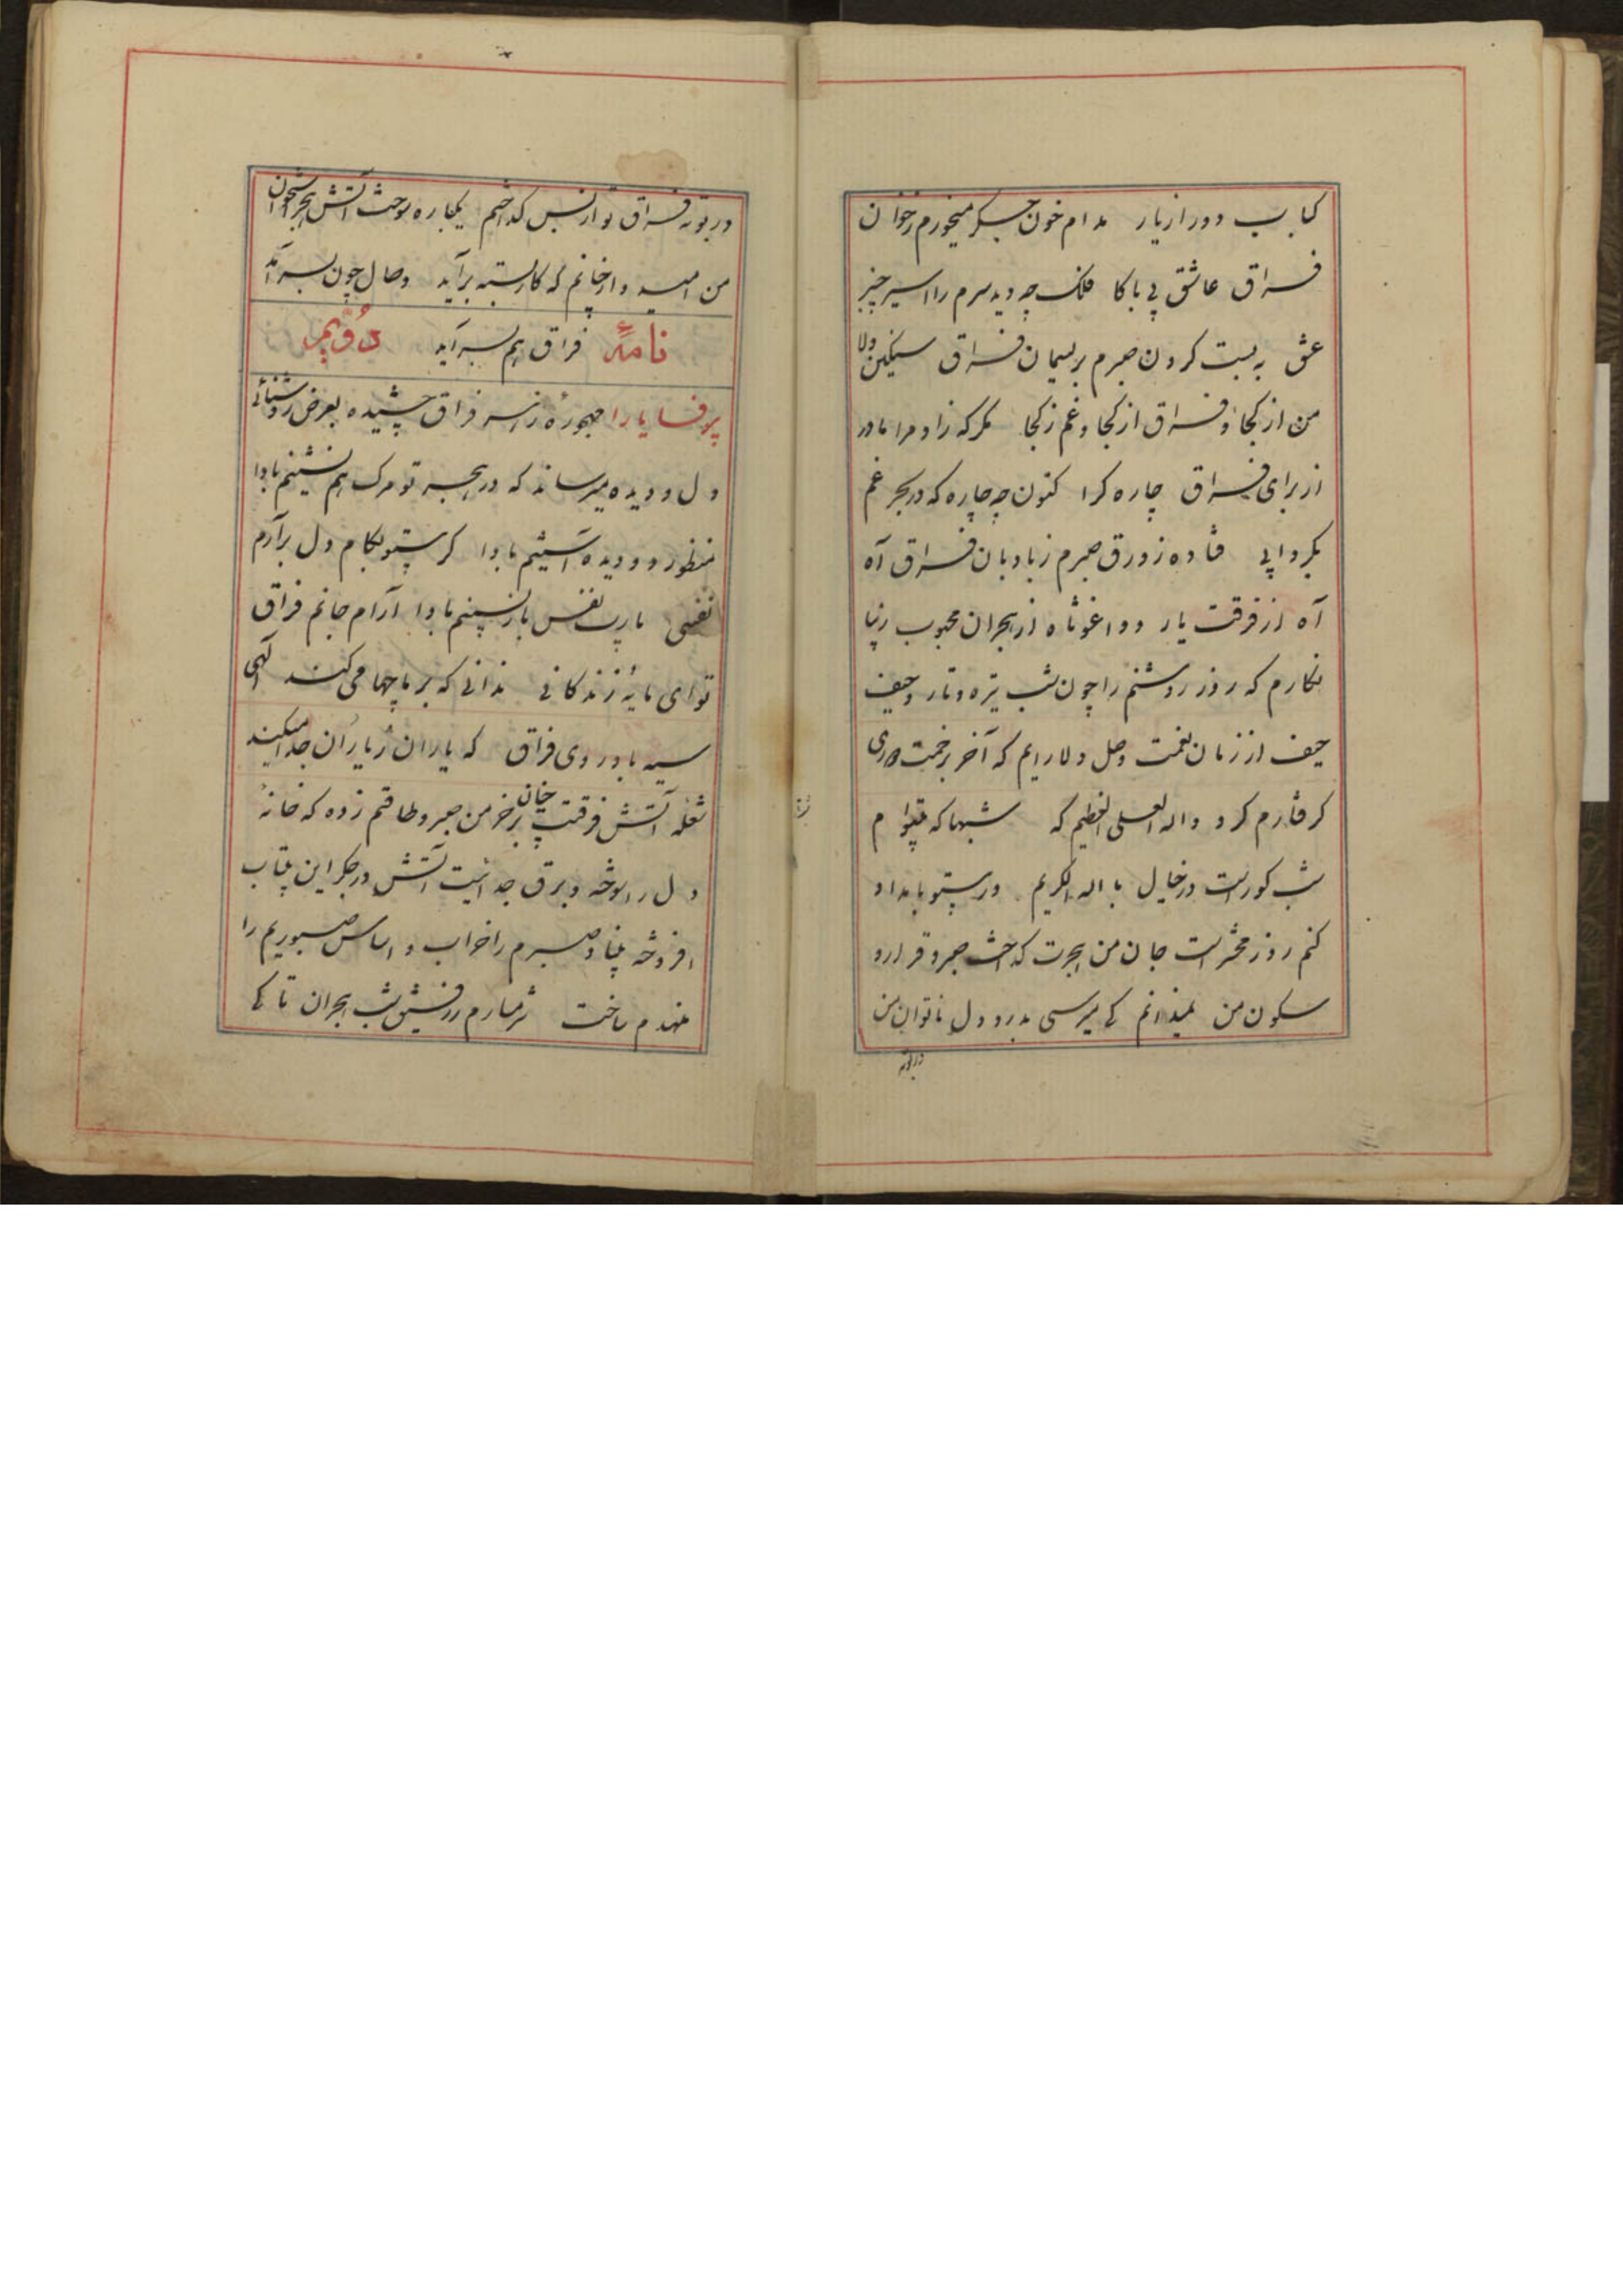 کباب دور از یار مدام خون جگر میخورم ز خوان
فراق عاشق بی باکا فلک چه دید سرم را اسیر چنبر
عشق به بست کردن صبرم بریسمان فراق سیکین دلا
من از کجا و فراق از کجا و غم ز کجا مگر که زاد مرا مادر
از برای فراق چاره گرا کنون چه چاره که در بحر غم
بگردابی فتاده زورق صبرم ز بادبان فراق آه
آه از فرقت یار و واغوثاه از هجران محبوب زیبا
نگارم که روز روشنم را چون شب تیره و تار و حیف
حیف از زمان نعمت وصل دلارایم که آخر بزحمت دوری
گرفتارم کرد واله العلی العظیم که شبها که بیتو ام
شب کورست در خیال باله الکریم ور بیتو بامداد
کنم روز محشرست جان من هجرت گداخت صبر و قرار و
سکون من نمیدانم کی میرسی بدرد دل ناتوان من
در بوته
در بوته فراق تو از بس گداختیم یکباره سوخت آتش هجر استخوان
من امید وار چنانم که کار بسته برآید وصال چون بسر آمد
نامهٔ فراق هم بسر آید دُوّیم
پر وفا یارا مهجوره زهر فراق چشیده بعرض روشنائی
دل و دیده میرساند که در هجر تو مرگ هم نشینم بادا
منظور دو دیده آستینم بادا گر بیتو بکام دل برآرم
نفسی یا رب نفس بازپسینم بادا آرام جانم فراق
تو ای مایهٔ زندگانی ندانی که بر ما چها می کند الهی
سیه باد روی فراق که یاران ز یاران جدا میکند
شعله آتش فرقتت چنان بر خرمن صبر و طاقتم زده که خانهٔ
دل را سوخته و برق جدائیت آتش در جگر این بیتاب
افروخته بنیاد صبرم را خراب و اساس صبوریم را
منهدم ساخت شرمسارم ز رفیق شب هجران تا کی